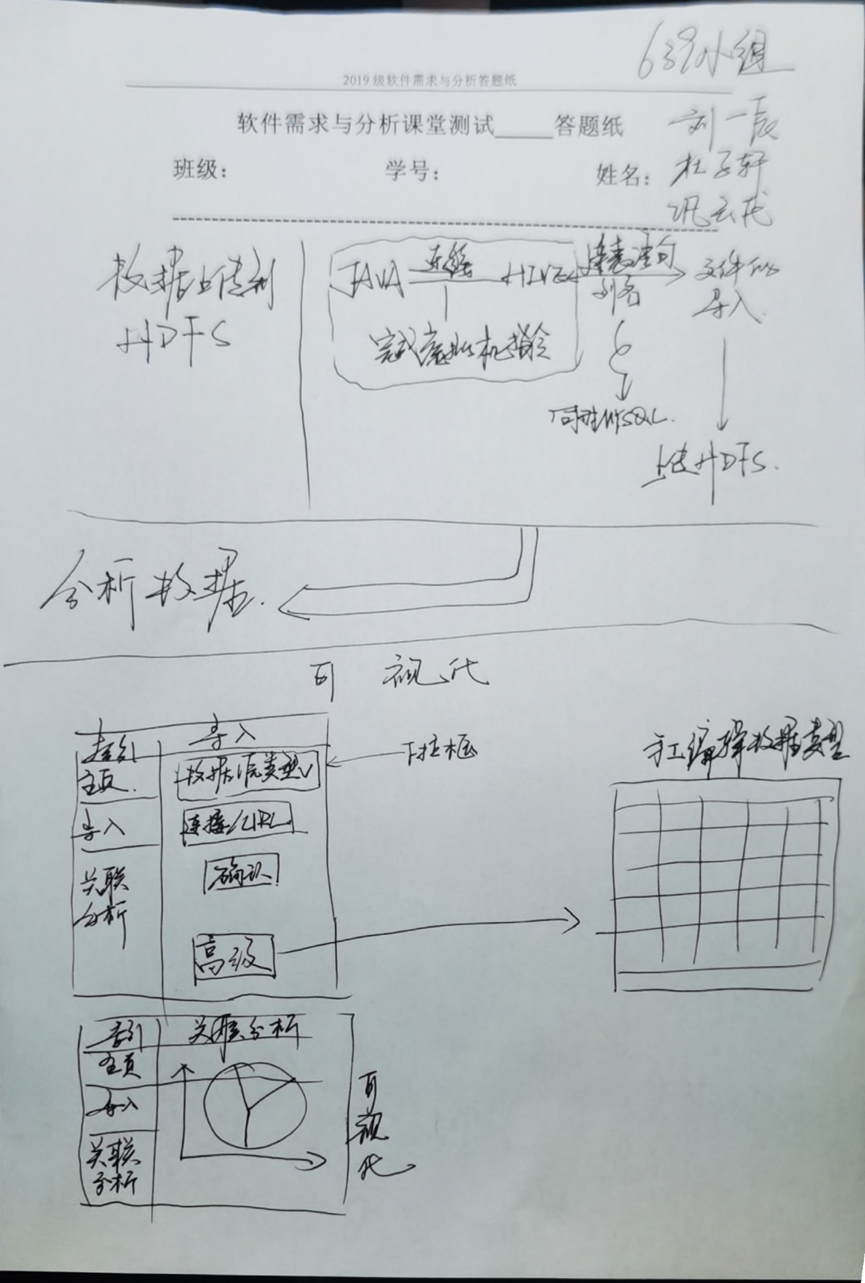 639小组
2019级软件需求与分析答题纸
软件需求与分析课堂测试_____答题纸
刘一辰
班级: 学号: 姓名:
杜子轩
数据上传到
HDFS
JAVA 连接 HIVE 建表语句
列名
文件的
导入
完成虚拟机指令
同步MYSQL.
上传HDFS.
分析数据.
可视化
索引 导入
主页.
数据源类型
下拉框
手工编辑数据类型
导入
连接/URL
关联
分析
确认
高级
索引 关联分析
主页
导入
关联
分析
可视化